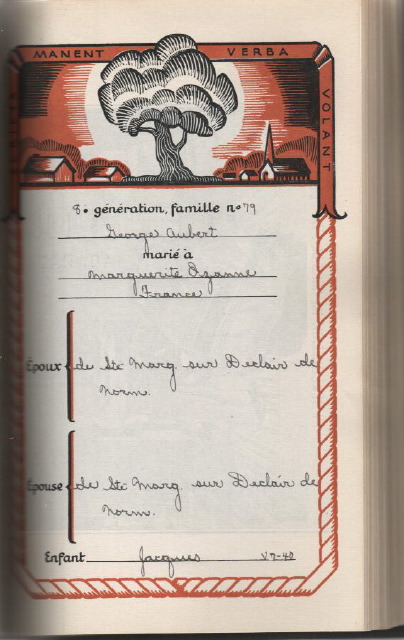 MANENT VERBA
VOLANT
8e génération, famille no 79
George Aubert
marié à
Marguerite Ozanne
France
Époux de Ste Marg. sur Declair de
Norm.
Épouse de Ste Marg. sur Declair de
Norm.
Enfant Jacques V.7-40